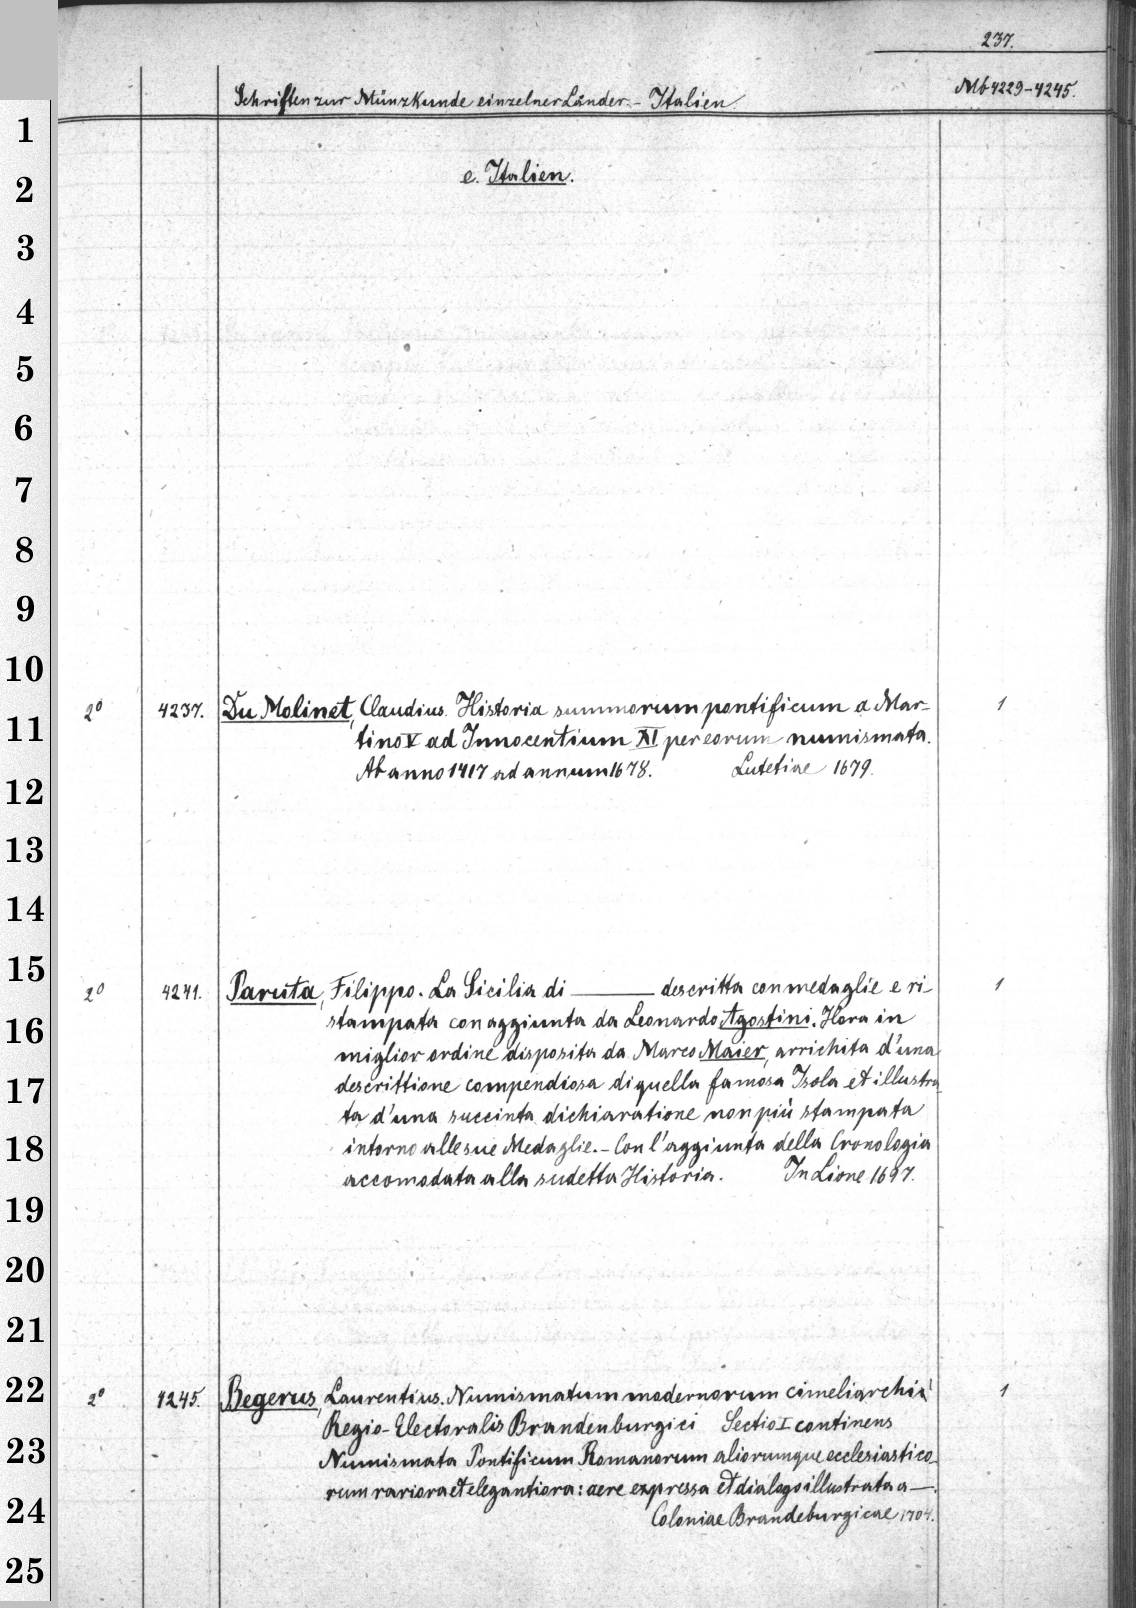 237.
Schriften zur Münzkunde einzelner Länder. - Italien.
Mb 4229-4245.
e. Italien.
2° 4237. Du Molinet, Claudius. Historia summorum pontificum a Mar- 1
tino V ad Innocentium XI per eorum numismata.
Ab anno 1417 ad annum 1678. Lutetiae 1679.
2° 4241. Paruta, Filippo. La Sicilia di ——— descritta con medaglie e ri 1
stampata con aggiunta da Leonardo Agostini. Hora in
miglior ordine disposita da Marco Maier, arrichita d'una
descrittione compendiosa di quella famosa Isola et illustra
ta d'una succinta dichiaratione non più stampata
intorno alle sue Medaglie. - Con l'aggiunta della Cronologia
accomodata alla sudetta Historia. In Lione 1697.
2° 4245. Begerus, Laurentius. Numismatum modernorum cimeliarchii 1
Regio-Electoralis Brandenburgici Sectio I continens
Numismata Pontificum Romanorum aliorumque ecclesiastico-
rum rariora et elegantiora: aere expressa et dialogo illustrata a —.
Coloniae Brandeburgicae 1704.
1
2
3
4
5
6
7
8
9
10
11
12
13
14
15
16
17
18
19
20
21
22
23
24
25